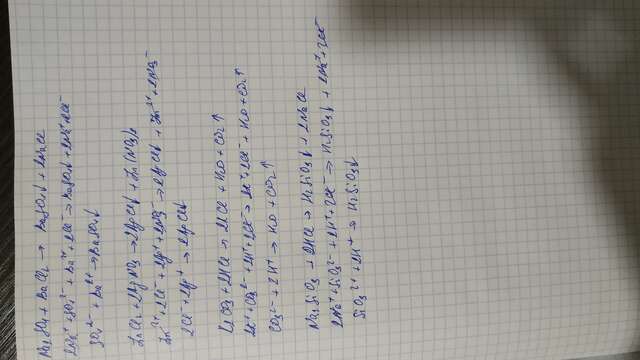 Na2SO4 + BaCl2 → BaSO4↓ + 2NaCl
2Na⁺ + SO4²⁻ + Ba²⁺ + 2Cl⁻ → BaSO4↓ + 2Na⁺ + 2Cl⁻
SO4²⁻ + Ba²⁺ → BaSO4↓
ZnCl2 + 2AgNO3 → 2AgCl↓ + Zn(NO3)2
Zn²⁺ + 2Cl⁻ + 2Ag⁺ + 2NO3⁻ → 2AgCl↓ + Zn²⁺ + 2NO3⁻
2Cl⁻ + 2Ag⁺ → 2AgCl↓
+ 2HCl → + H2O + CO2↑
+ CO3²⁻ + 2H⁺ + 2Cl⁻ → + 2Cl⁻ + H2O + CO2↑
CO3²⁻ + 2H⁺ → H2O + CO2↑
Na2SiO3 + 2HCl → H2SiO3↓ + 2NaCl
2Na⁺ + SiO3²⁻ + 2H⁺ + 2Cl⁻ → H2SiO3↓ + 2Na⁺ + 2Cl⁻
SiO3²⁻ + 2H⁺ → H2SiO3↓